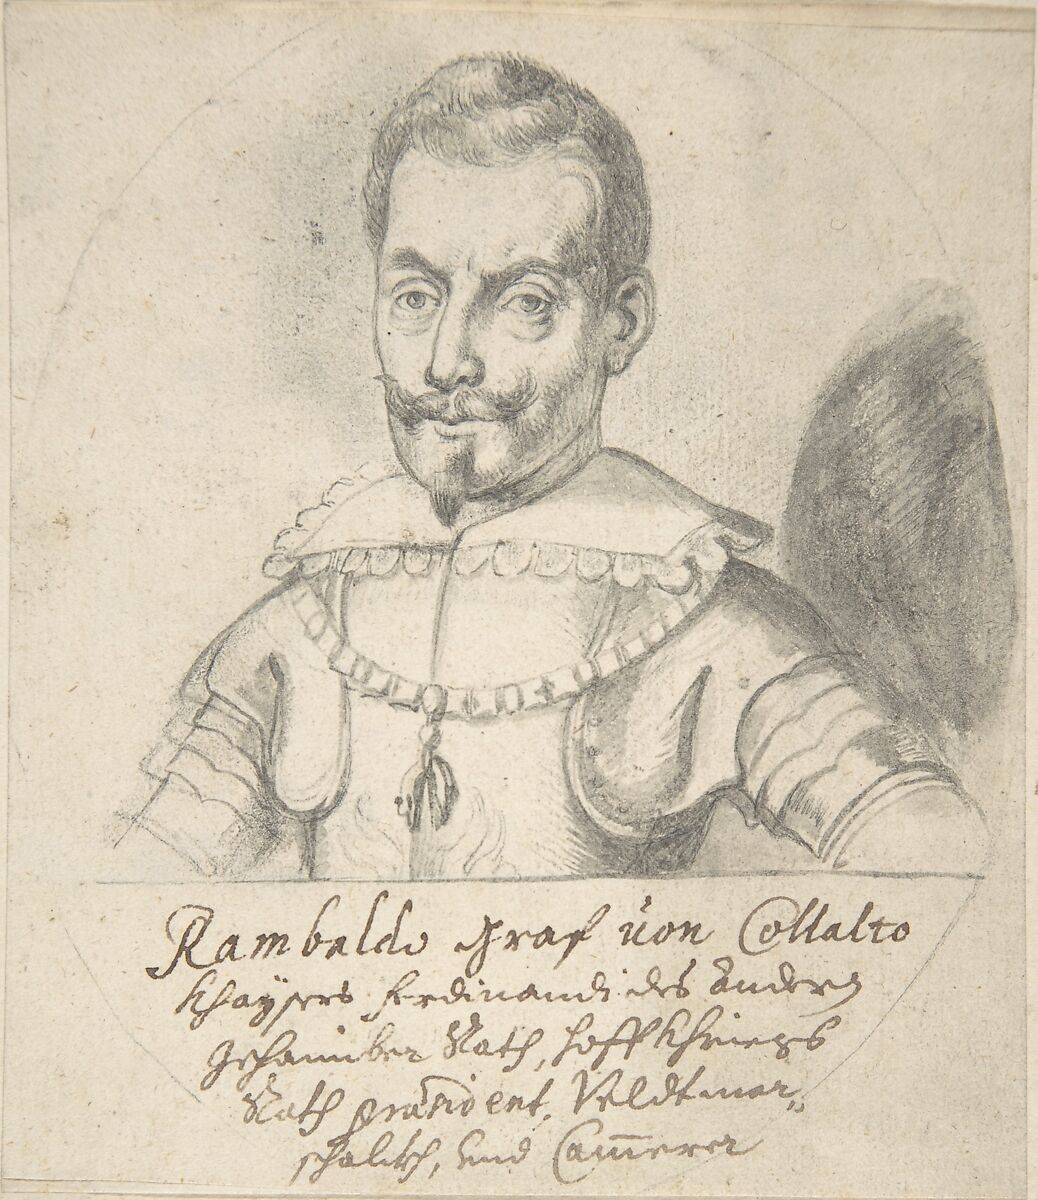 Rambaldo Graf von Collalto
Khaysers Ferdinandi des Andern
gehaimber Rath, Hoffkhriegs
Rath præsident, Veldtmar-
schalkh, und Cam̅erer